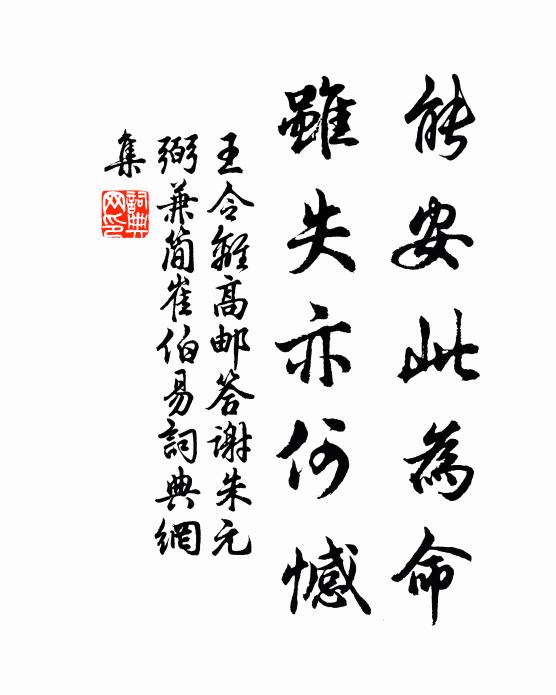 能安此為命
雖失亦何憾
王令離高郵答谢朱元
弼兼简崔伯易詞典網
集
詞典
网印